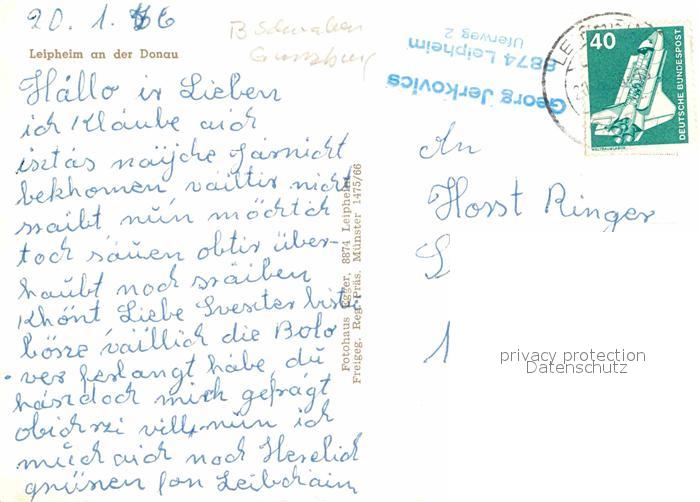 20. 1. 76
B Schwaben
Gunzburg
Leipheim an der Donau
Hállo ir Lieben
ich Kláube aich
isztás naijche gárnicht
bekhomen váiltir nicht
sraibt nun möchtich
toch sáuen obtir über-
haubt noch sraiben
Khönt Liebe Sveszter bistu
böse váillich die Bolo
ver ferlangt hábe, du
hászdoch mich gefrágt
obichszi vill, nun ich
much aich noch Herzlich
grüszen fon Leibhaim
Fotohaus Egger, 8874 Leipheim
Freigeg. Reg. Präs. Münster 1475/66
Georg Jerkovics
8874 Leipheim
Uferweg 2
LEIPHEIM
40
DEUTSCHE BUNDESPOST
An
Horst Ringer
1
privacy protection
Datenschutz